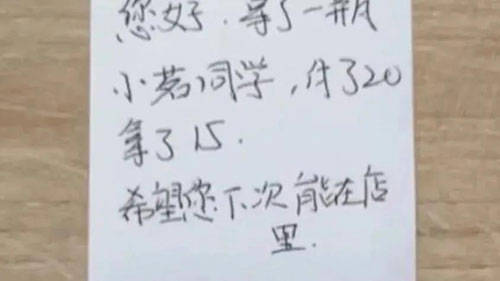 您好.拿了一瓶
小茗同学,付了20
拿了15.
希望您下次能在店
里.